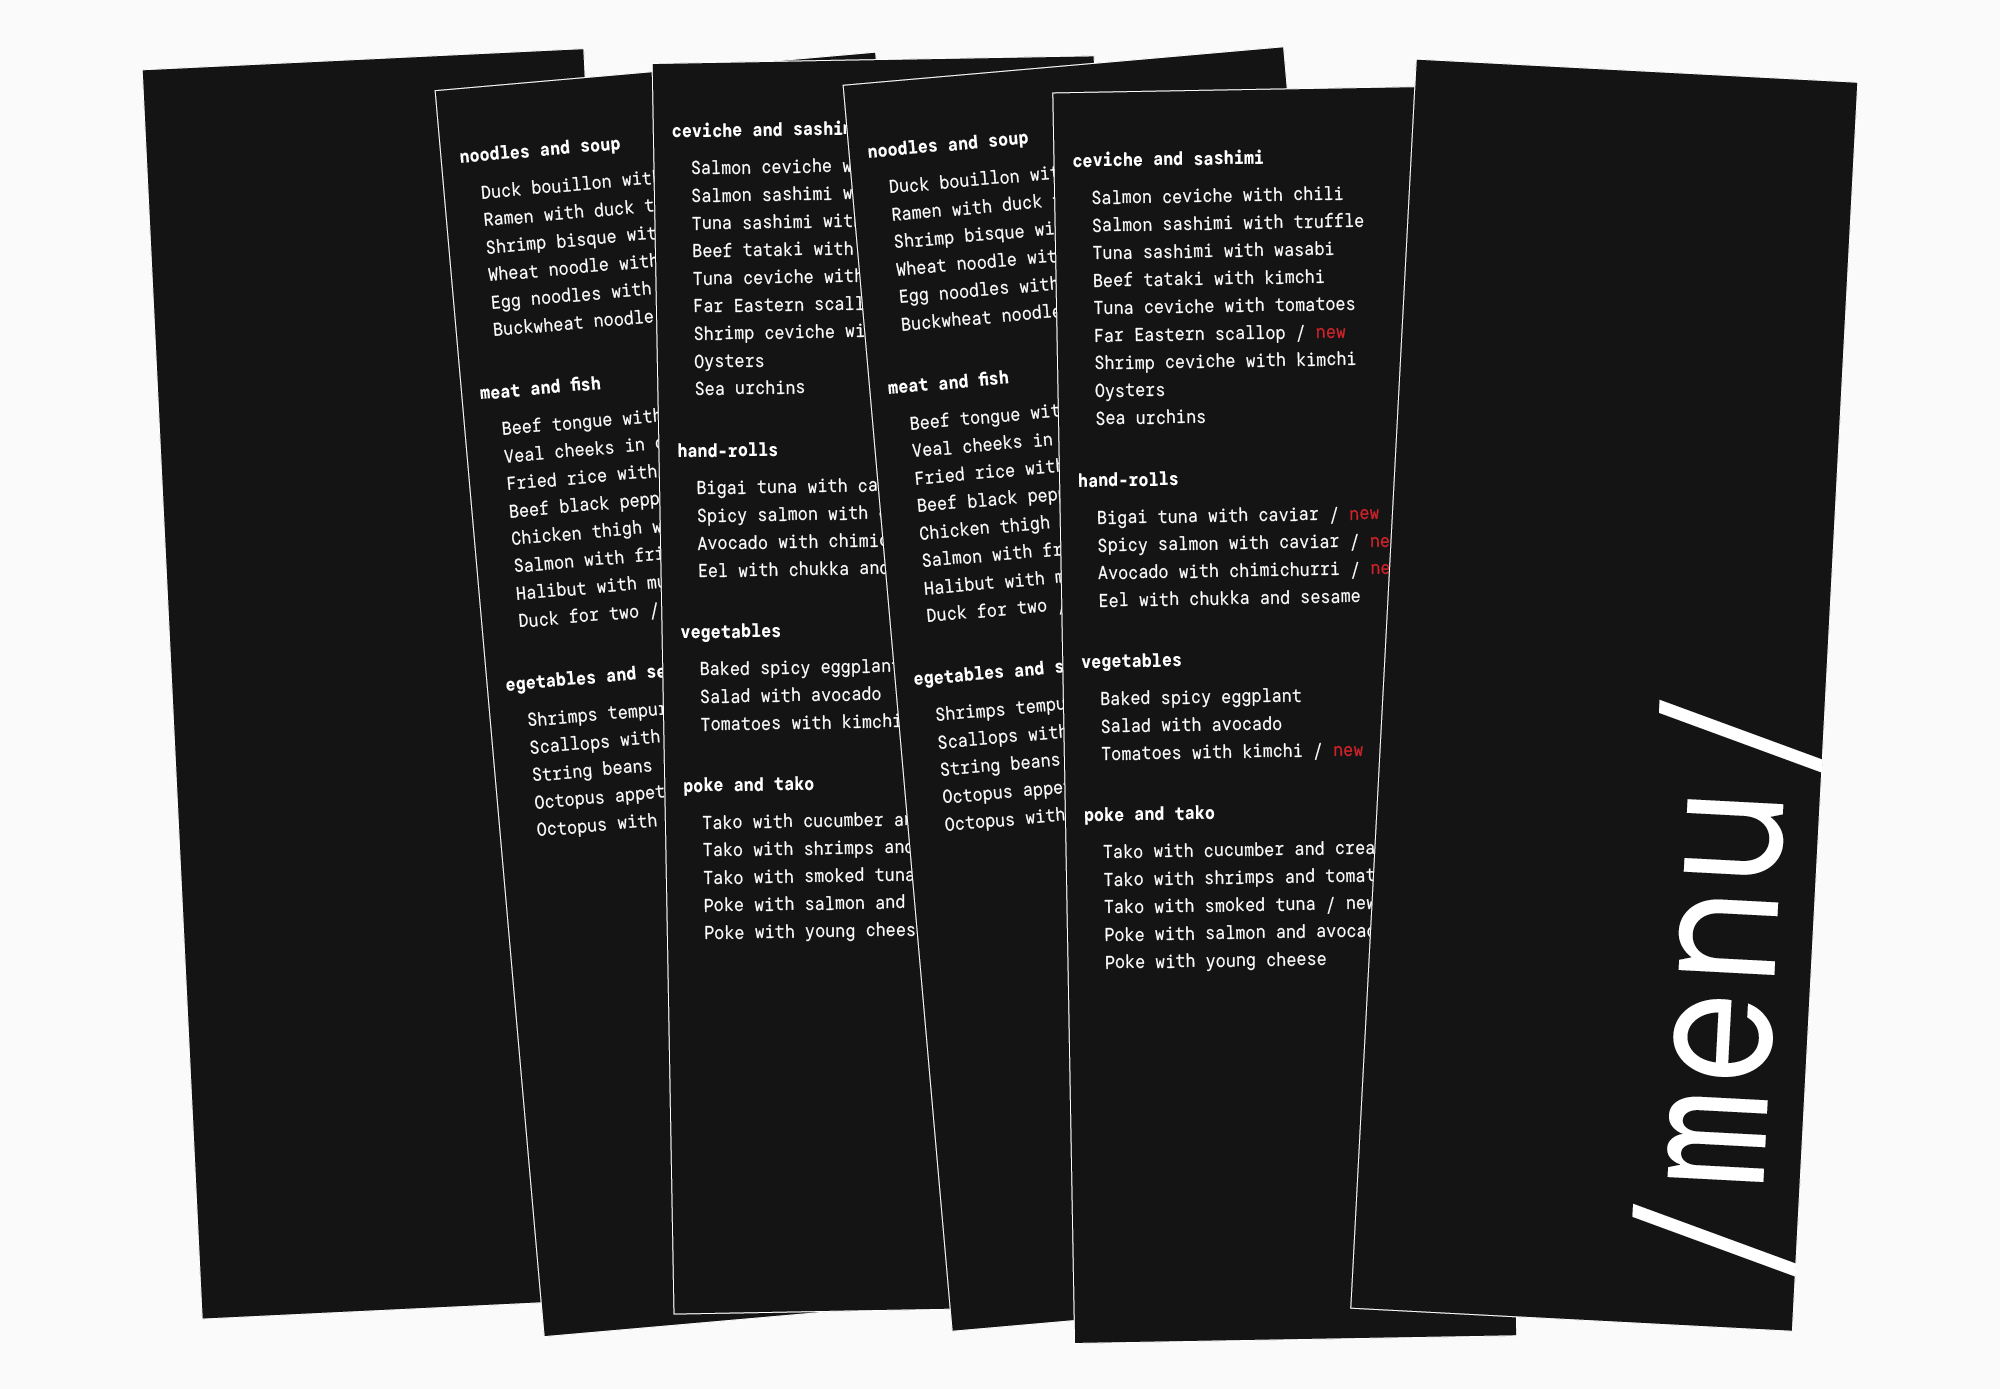 noodles and soup
Duck bouillon
Ramen with duck
Shrimp bisque
Wheat noodle with
Egg noodles with
Buckwheat noodle
meat and fish
Beef tongue with
Veal cheeks in
Fried rice with
Beef black
Chicken thigh
Salmon with
Halibut with
Duck for two /
egetables and
Shrimps
Scallops with
String beans
Octopus
Octopus with
ceviche and
Salmon ceviche
Salmon sashimi
Tuna sashimi
Beef tataki with
Tuna ceviche with
Far Eastern
Shrimp ceviche
Oysters
Sea urchins
hand-rolls
Bigai tuna with
Spicy salmon with
Avocado with
Eel with chukka
vegetables
Baked spicy
Salad with avocado
Tomatoes with kimchi
poke and tako
Tako with cucumber
Tako with shrimps
Tako with smoked tuna
Poke with salmon and
Poke with young
noodles and soup
Duck bouillon
Ramen with duck
Shrimp bisque
Wheat noodle
Egg noodles with
Buckwheat noodle
meat and fish
Beef tongue
Veal cheeks in
Fried rice with
Beef black
Chicken thigh
Salmon with
Halibut with
Duck for two
egetables and
Shrimps
Scallops with
String beans
Octopus
Octopus with
ceviche and sashimi
Salmon ceviche with chili
Salmon sashimi with truffle
Tuna sashimi with wasabi
Beef tataki with kimchi
Tuna ceviche with tomatoes
Far Eastern scallop / new
Shrimp ceviche with kimchi
Oysters
Sea urchins
hand-rolls
Bigai tuna with caviar / new
Spicy salmon with caviar /
Avocado with chimichurri /
Eel with chukka and sesame
vegetables
Baked spicy eggplant
Salad with avocado
Tomatoes with kimchi / new
poke and tako
Tako with cucumber and
Tako with shrimps and
Tako with smoked tuna / new
Poke with salmon and
Poke with young cheese
/menu/